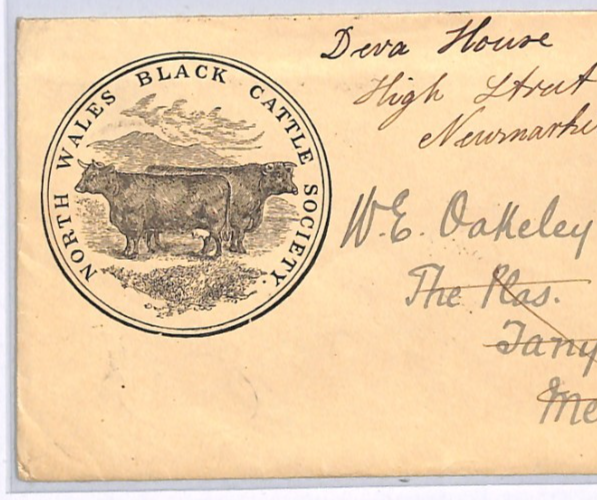 NORTH WALES BLACK CATTLE SOCIETY.
Deva House
High Street
Newmarke
W.E. Oakeley
The Plas.
Tany
Me